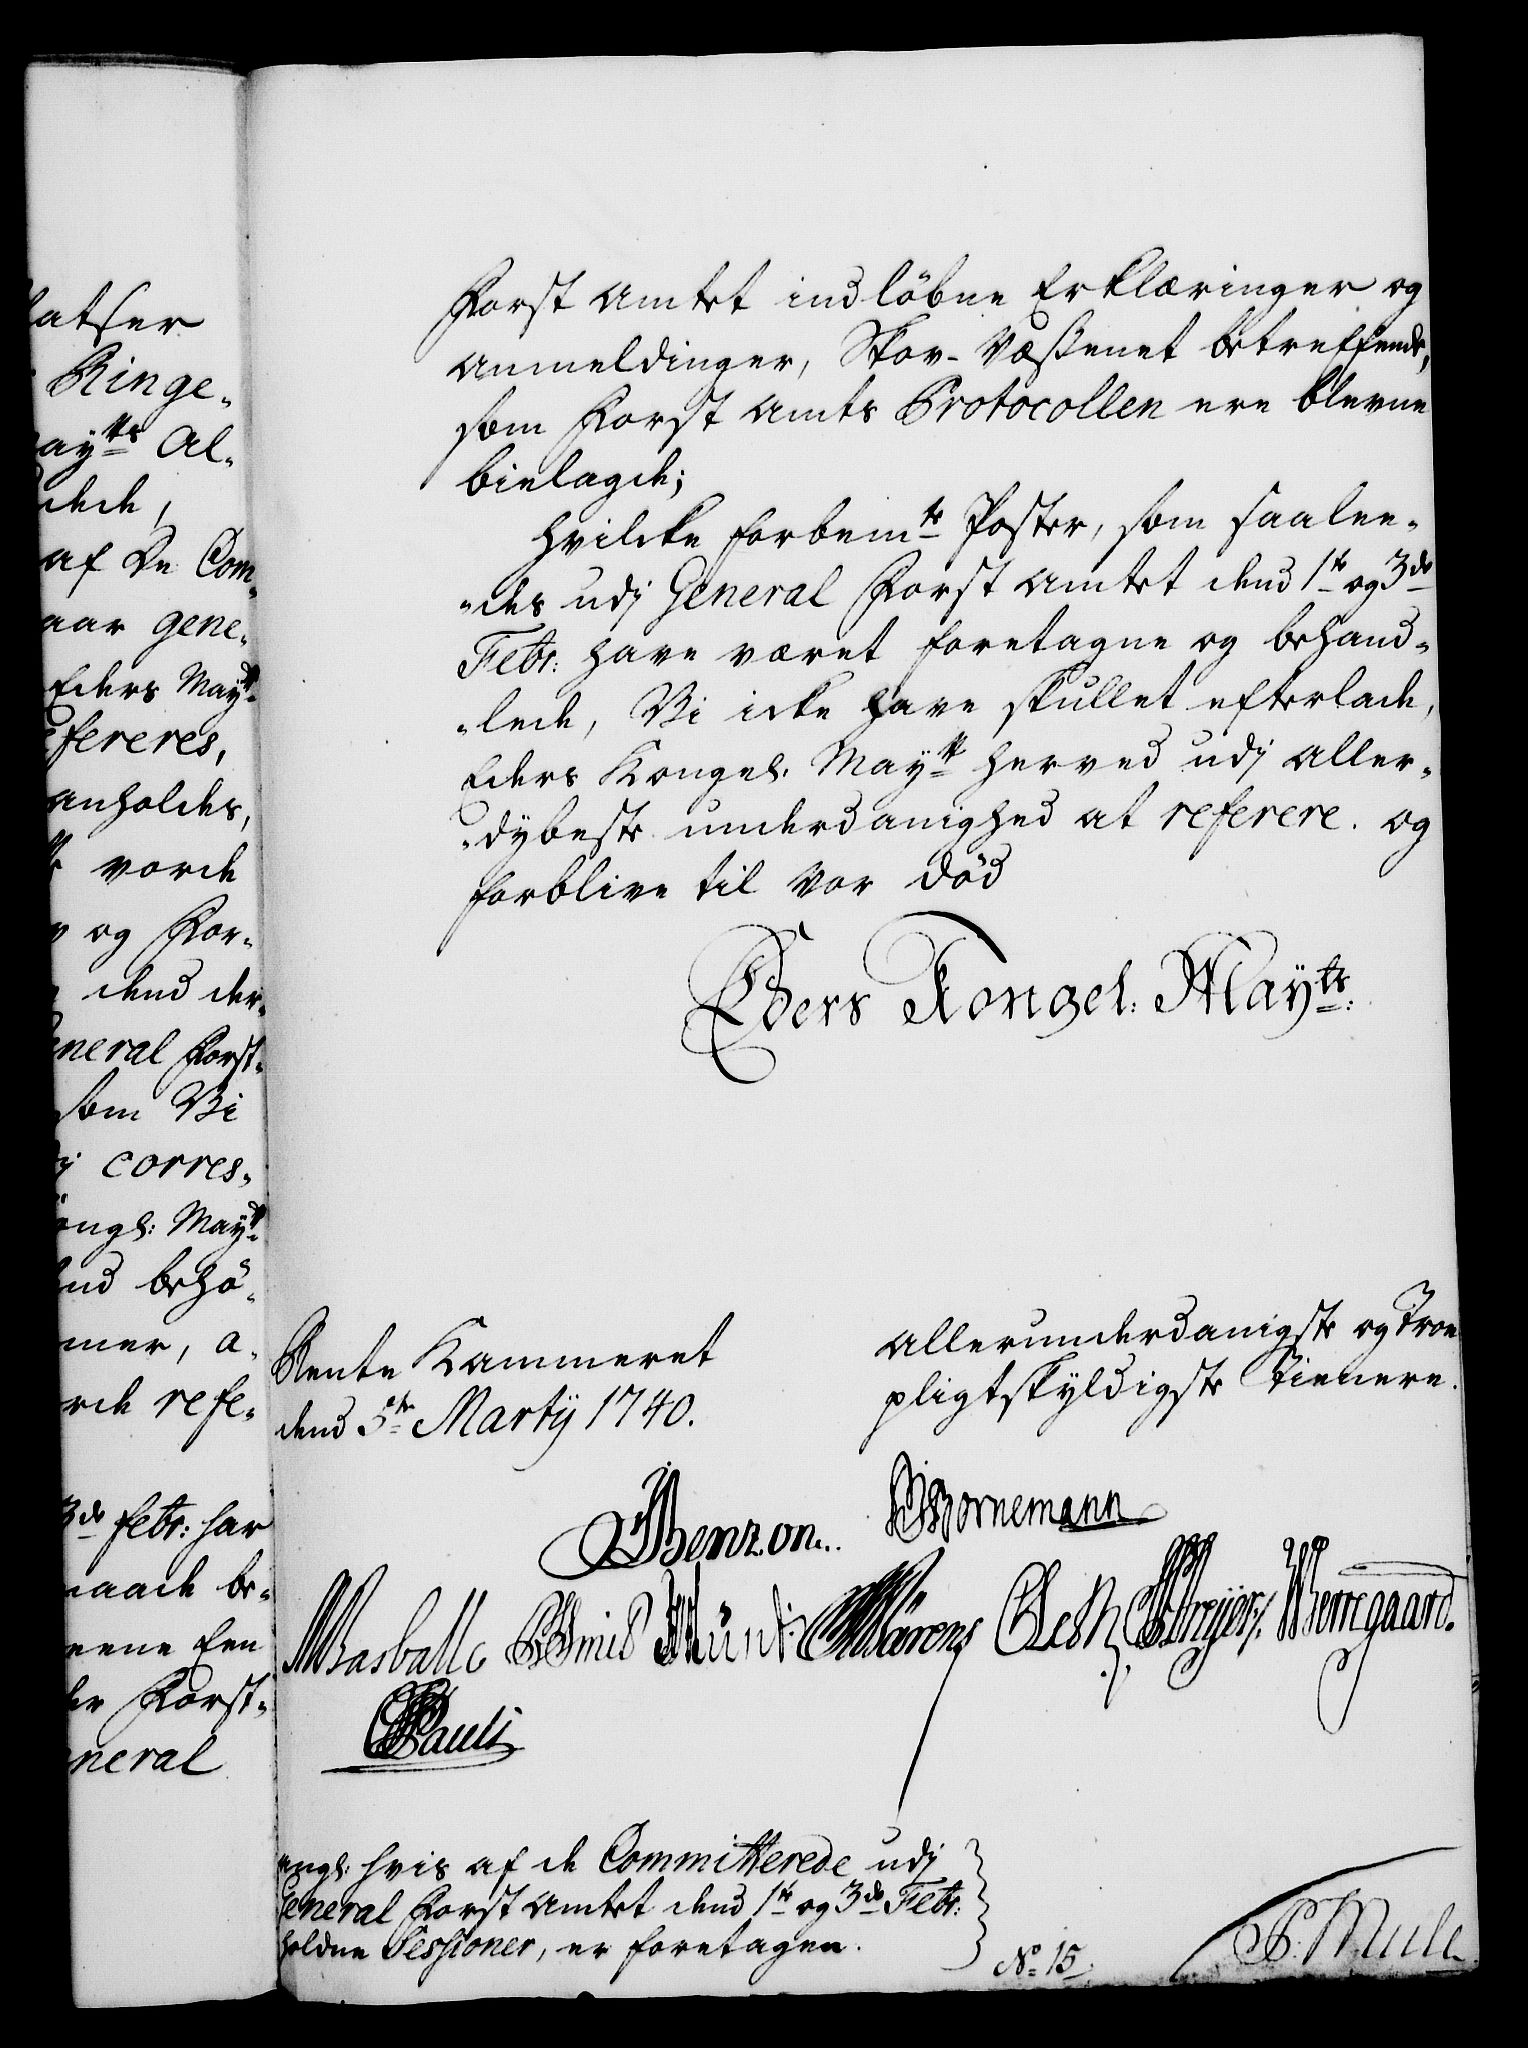 latser
Ringe-
aytts Al-
dede,
af De Com-
aar gene-
Eders Maytt
efereres,
anholdes,
vorde
og For-
dend der-
eneral Forst-
som Vi
corres-
ongl: Maytt
end behö-
mer, a-
rde refe-
3de Febr: har
maade be-
eene Een
der Forst-
neral
Forst Amtet indlöbne Erklæringer og
Anmeldinger, Skov-Væßenet betreffende,
som Forst Amts Protocollen ere blevne
bielagde;
Hvilcke forbemte Poster, som saalee-
-des udj General Forst Amtet dend 1te og 3de
Febr: have været foretagne og behand-
-lede, Vi icke have skullet efterlade,
Eders Kongel. Maytt herved udj aller-
-dybeste underdanighed at referere. og
forblive til vor Död
Eders Kongel: Mayts:
Rente Kammeret
dend 5te Martij 1740.
allerunderdanigste og Troe
pligtskyldigste Tienere.
JBenzon..
Bornemann
Basballe Smid Münt Kærens Oest Dreyer. Wernegaard.
Pauli
angl: hvis af de Committerede udj
General Forst Amtet dend 1te og 3de Febr:
holdne Sessioner, er foretagen.
No 15
P. Mule